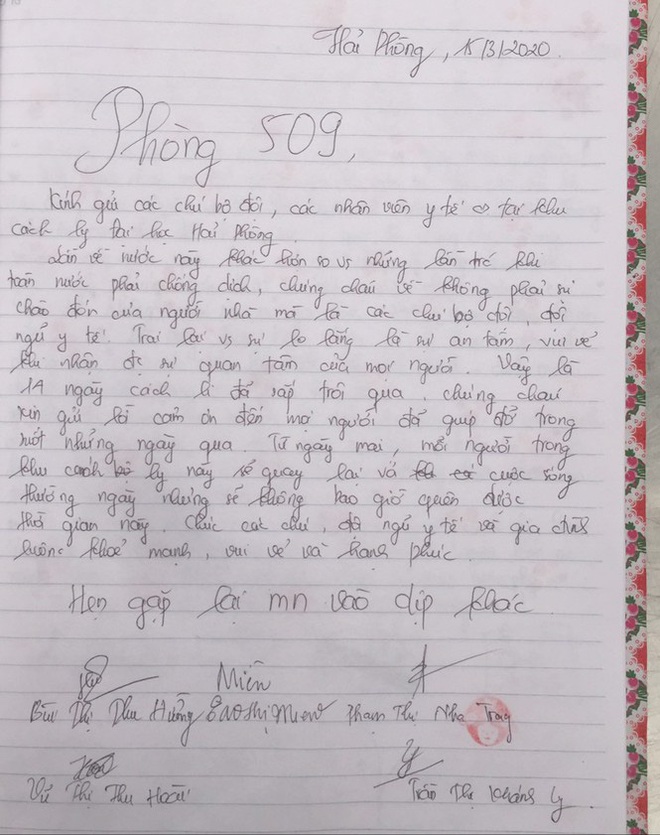 Hải Phòng, 15/3/2020.
Phòng 509,
Kính gửi các chú bộ đội, các nhân viên y tế tại khu
cách ly đại học Hải Phòng.
Lần về nước này khác hơn so vs những lần trc khi
toàn nước phải chống dịch, chúng cháu về không phải sự
chào đón của người nhà mà là các chú bộ đội, đội
ngũ y tế. Trái lại vs sự lo lắng là sự an tâm, vui vẻ
khi nhận đc sự quan tâm của mọi người. Vậy là
14 ngày cách li đã sắp trôi qua, chúng cháu
xin gửi lời cảm ơn đến mọi người đã giúp đỡ trong
suốt những ngày qua. Từ ngày mai, mỗi người trong
khu cách ly này sẽ quay lại vs cuộc sống
thường ngày nhưng sẽ không bao giờ quên được
thời gian này. Chúc các chú, đội ngũ y tế và gia đình
luôn khoẻ mạnh, vui vẻ và hạnh phúc.
Hẹn gặp lại mn vào dịp khác
Miên
Bùi Thị Thu Hường Phạm Thị Nha Trang
Vũ Thị Thu Hoài Trần Thị Khánh Ly